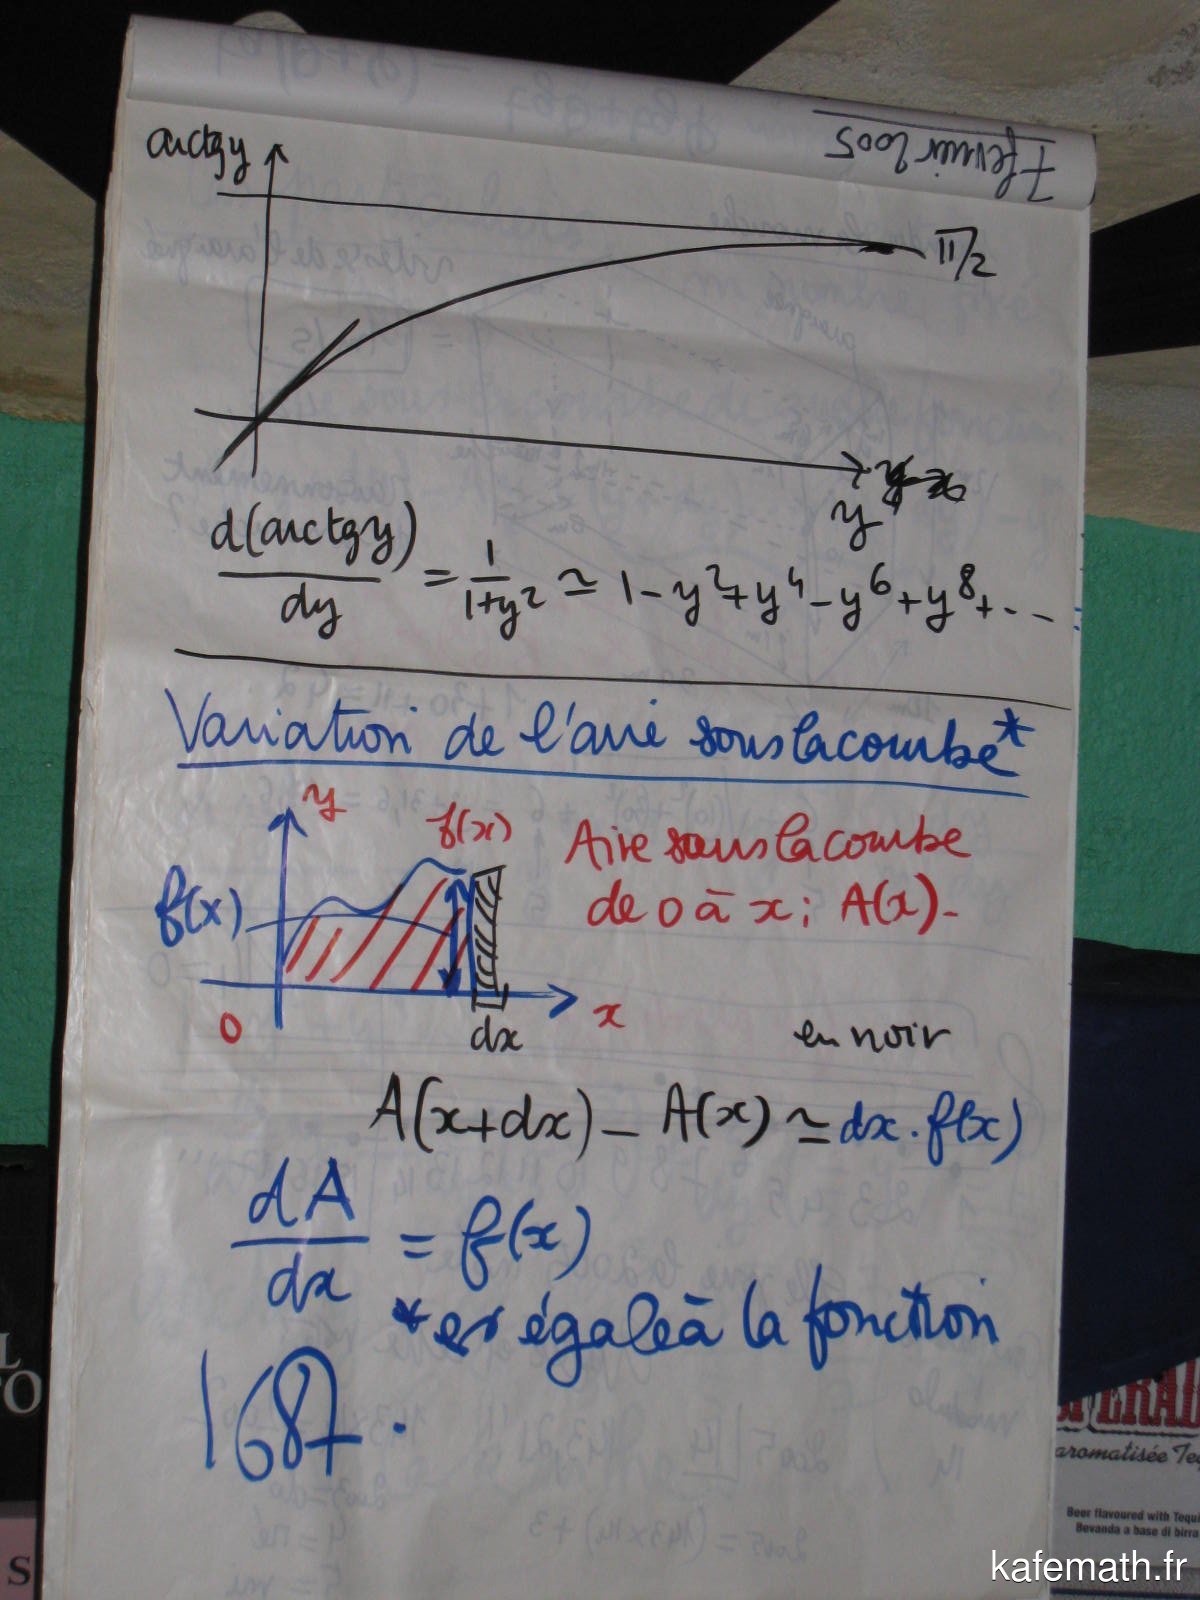 7 fevrier 2005
arctgy
π/2
y
d(arctgy)/dy = 1/1+y² ≃ 1 - y² + y⁴ - y⁶ + y⁸ + - - -
Variation de l'aire sous la courbe*
y
f(x)
f(x)
Aire sous la courbe
de 0 à x ; A(x) -
0
dx
x
en noir
A(x+dx) - A(x) ≃ dx . f(x)
dA/dx = f(x)
* est égale à la fonction
1687.
FERA
aromatisée Te
Beer flavoured with Tequi
Bevanda a base di birra
L
PO
S
kafemath.fr